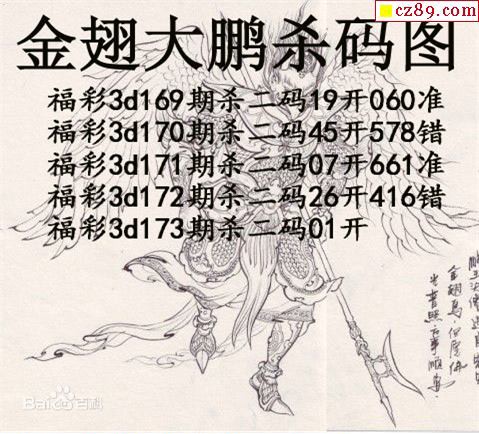 cz89.com
金翅大鹏杀码图
福彩3d169期杀二码19开060准
福彩3d170期杀二码45开578错
福彩3d171期杀二码07开661准
福彩3d172期杀二码26开416错
福彩3d173期杀二码01开
Bai百科